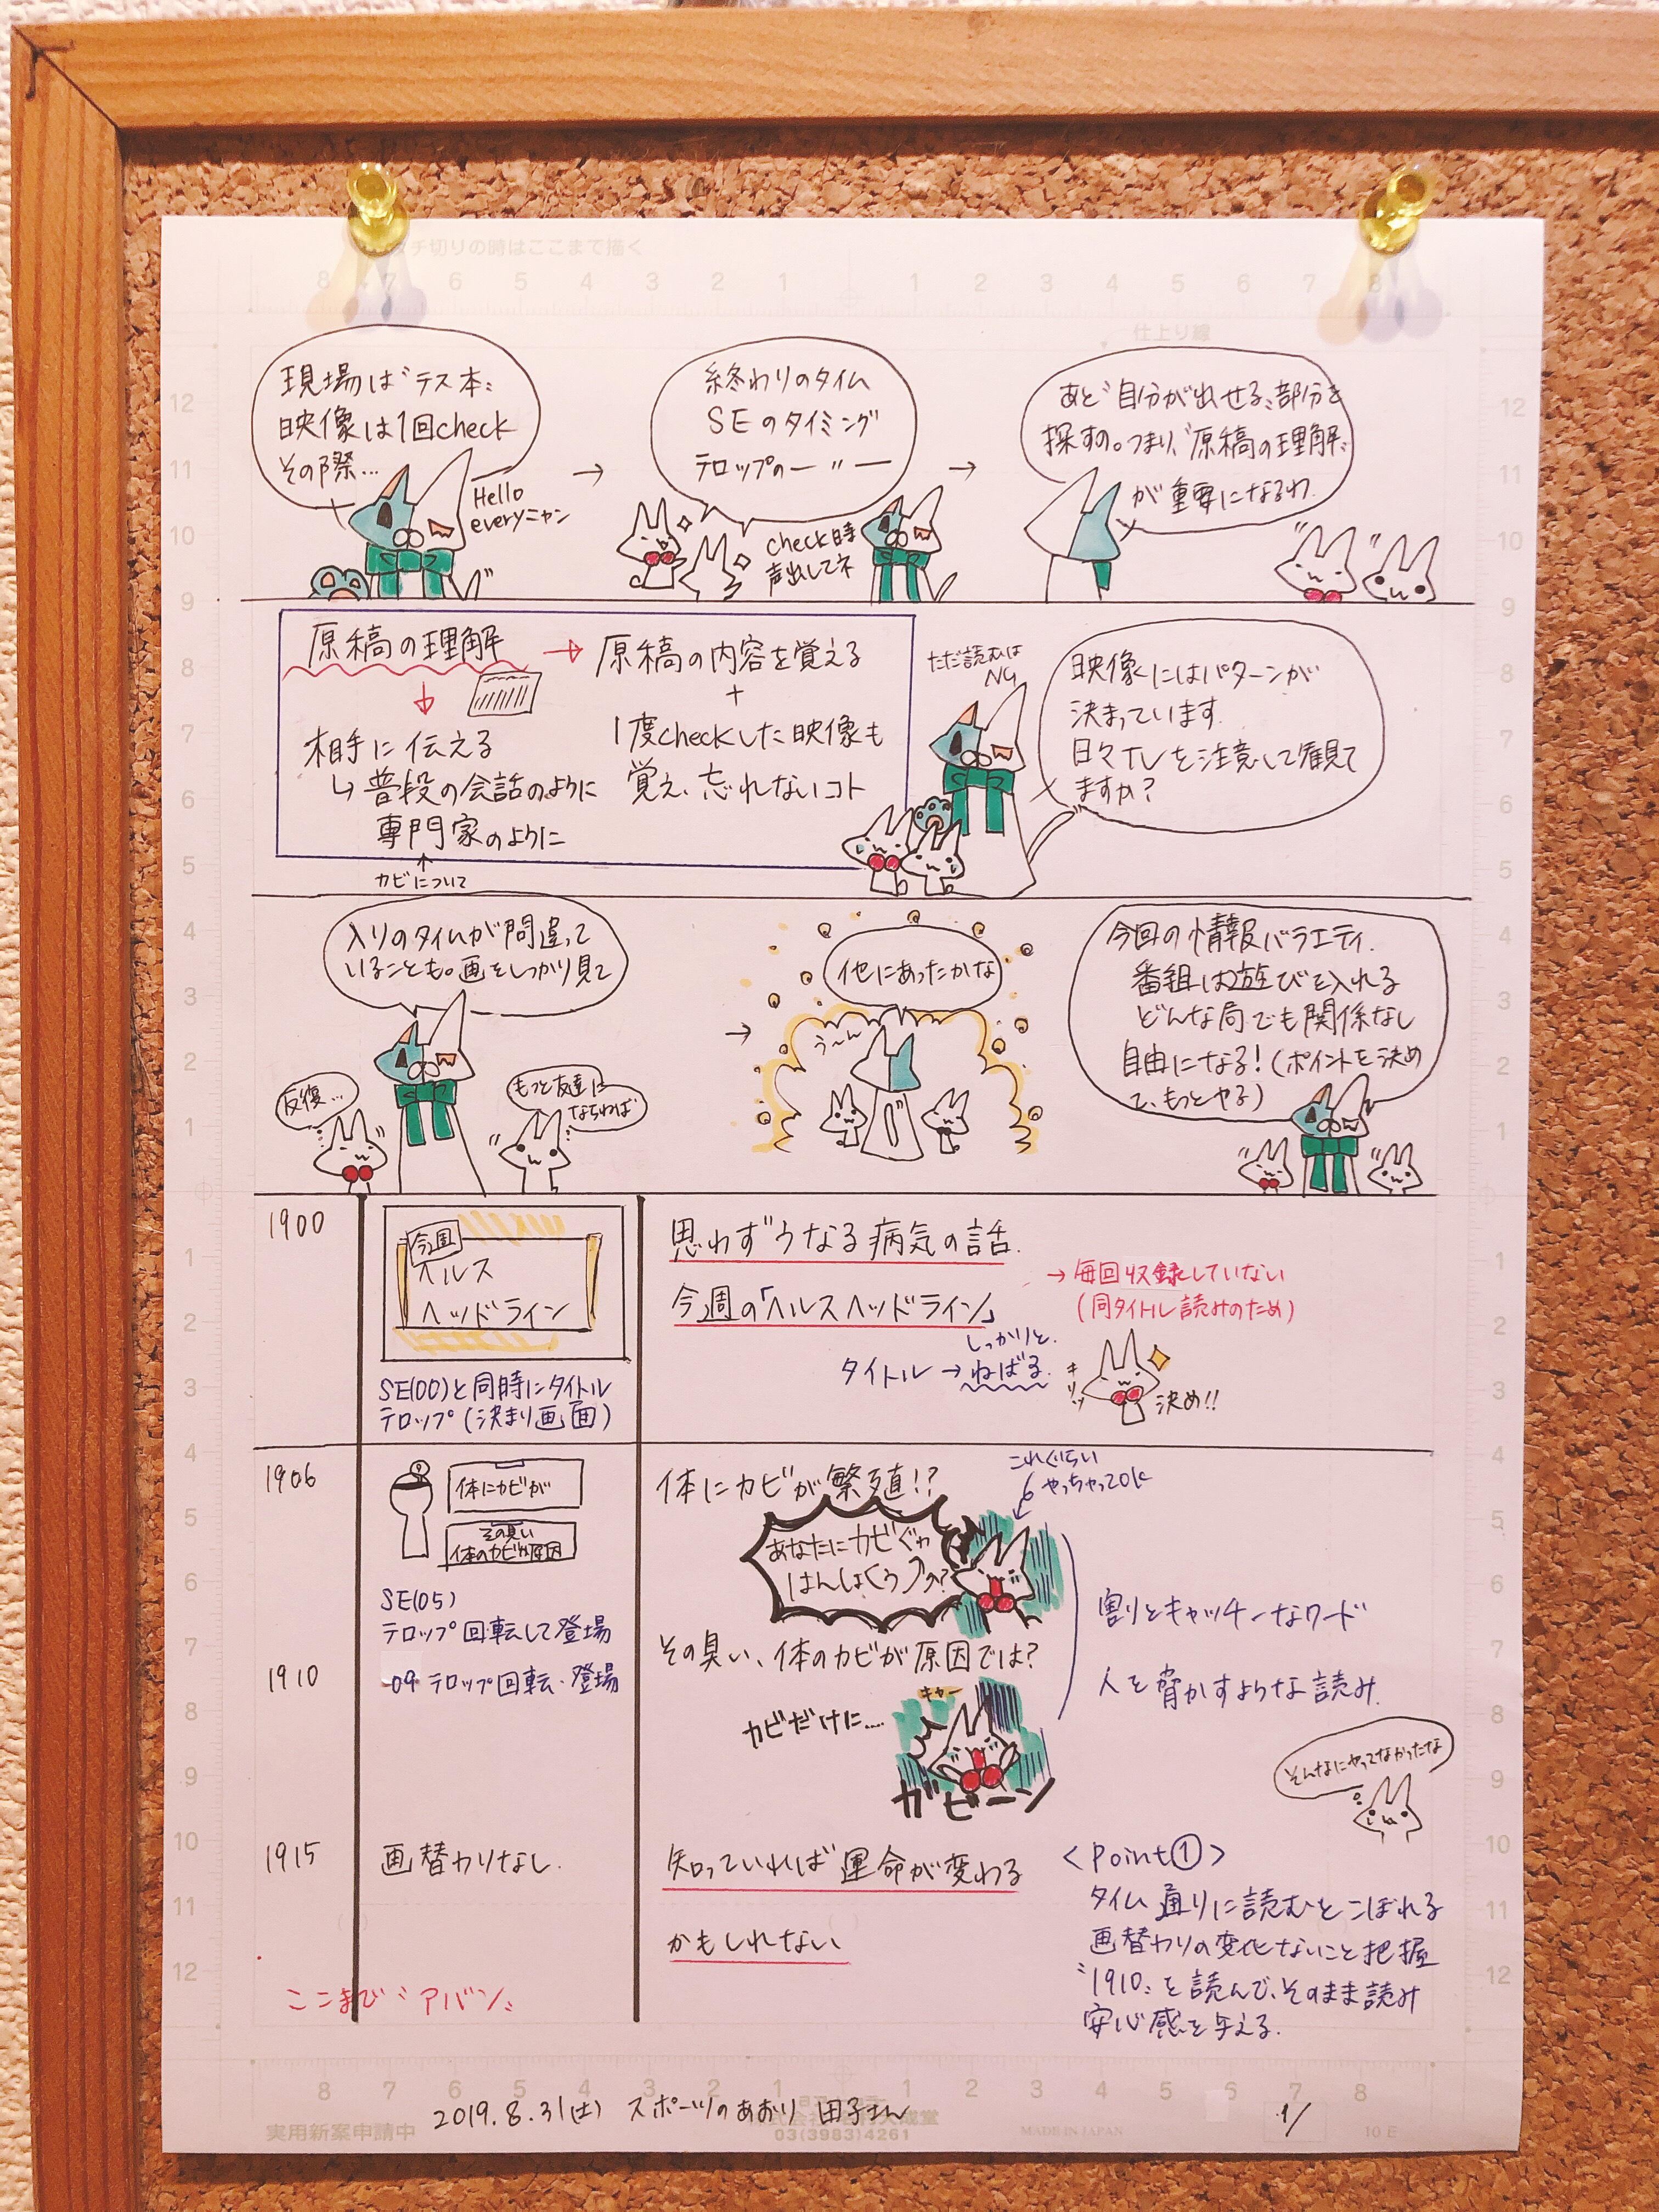 チ切りの時はここまで描く
仕上り線
現場は〝テス本〟
映像は1回check
その際…
Hello
everyニャン
→
終わりのタイム
SEのタイミング
テロップの―〃―
check時
声出してネ
→
あと〝自分が出せる〟部分を
探すの。つまり、〝原稿の理解〟
が重要になるわ
原稿の理解
→ 原稿の内容を覚える
+
1度checkした映像も
覚え、忘れないコト
↓
相手に伝える
↳ 普段の会話のように
専門家のように
↑
カビについて
ただ読むは
NG
映像にはパターンが
決まっています。
日々TVを注意して観て
ますか?
入りのタイムが間違って
いることも。画をしっかり見て
反復…
もっと友達に
なれれば
→
他にあったかな
う〜ん
今回の情報バラエティ
番組は遊びを入れる
どんな局でも関係なし
自由になる!(ポイントを決め
て、もっとやる)
1900
今週
ヘルス
ヘッドライン
SE(00)と同時にタイトル
テロップ(決まり画面)
思わずうなる病気の話。
今週の「ヘルスヘッドライン」
→ 毎回収録していない
(同タイトル読みのため)
しっかりと
タイトル → ねばる
キリッ
決め!!
1906
体にカビが
その臭い
体のカビが原因
SE(05)
テロップ回転して登場
体にカビが繁殖!?
これぐらい
やっちゃってOK
あなたにカビぐゎ
はんしょくぅ〜?
割とキャッチーなワード
1910
09 テロップ回転・登場
その臭い、体のカビが原因では?
人を脅かすような読み
カビだけに…..
キャー
ガビーン
そんなにやってなかったな
1915
画替わりなし。
知っていれば運命が変わる
かもしれない
<Point①>
タイム通りに読むとこぼれる
画替わりの変化ないこと把握
〝1910〟を読んで、そのまま読み
安心感を与える。
ここまで〝アバン〟
2019.8.31(土) スポーツのあおり 田子さん
1/
実用新案申請中
03(3983)4261
MADE IN JAPAN